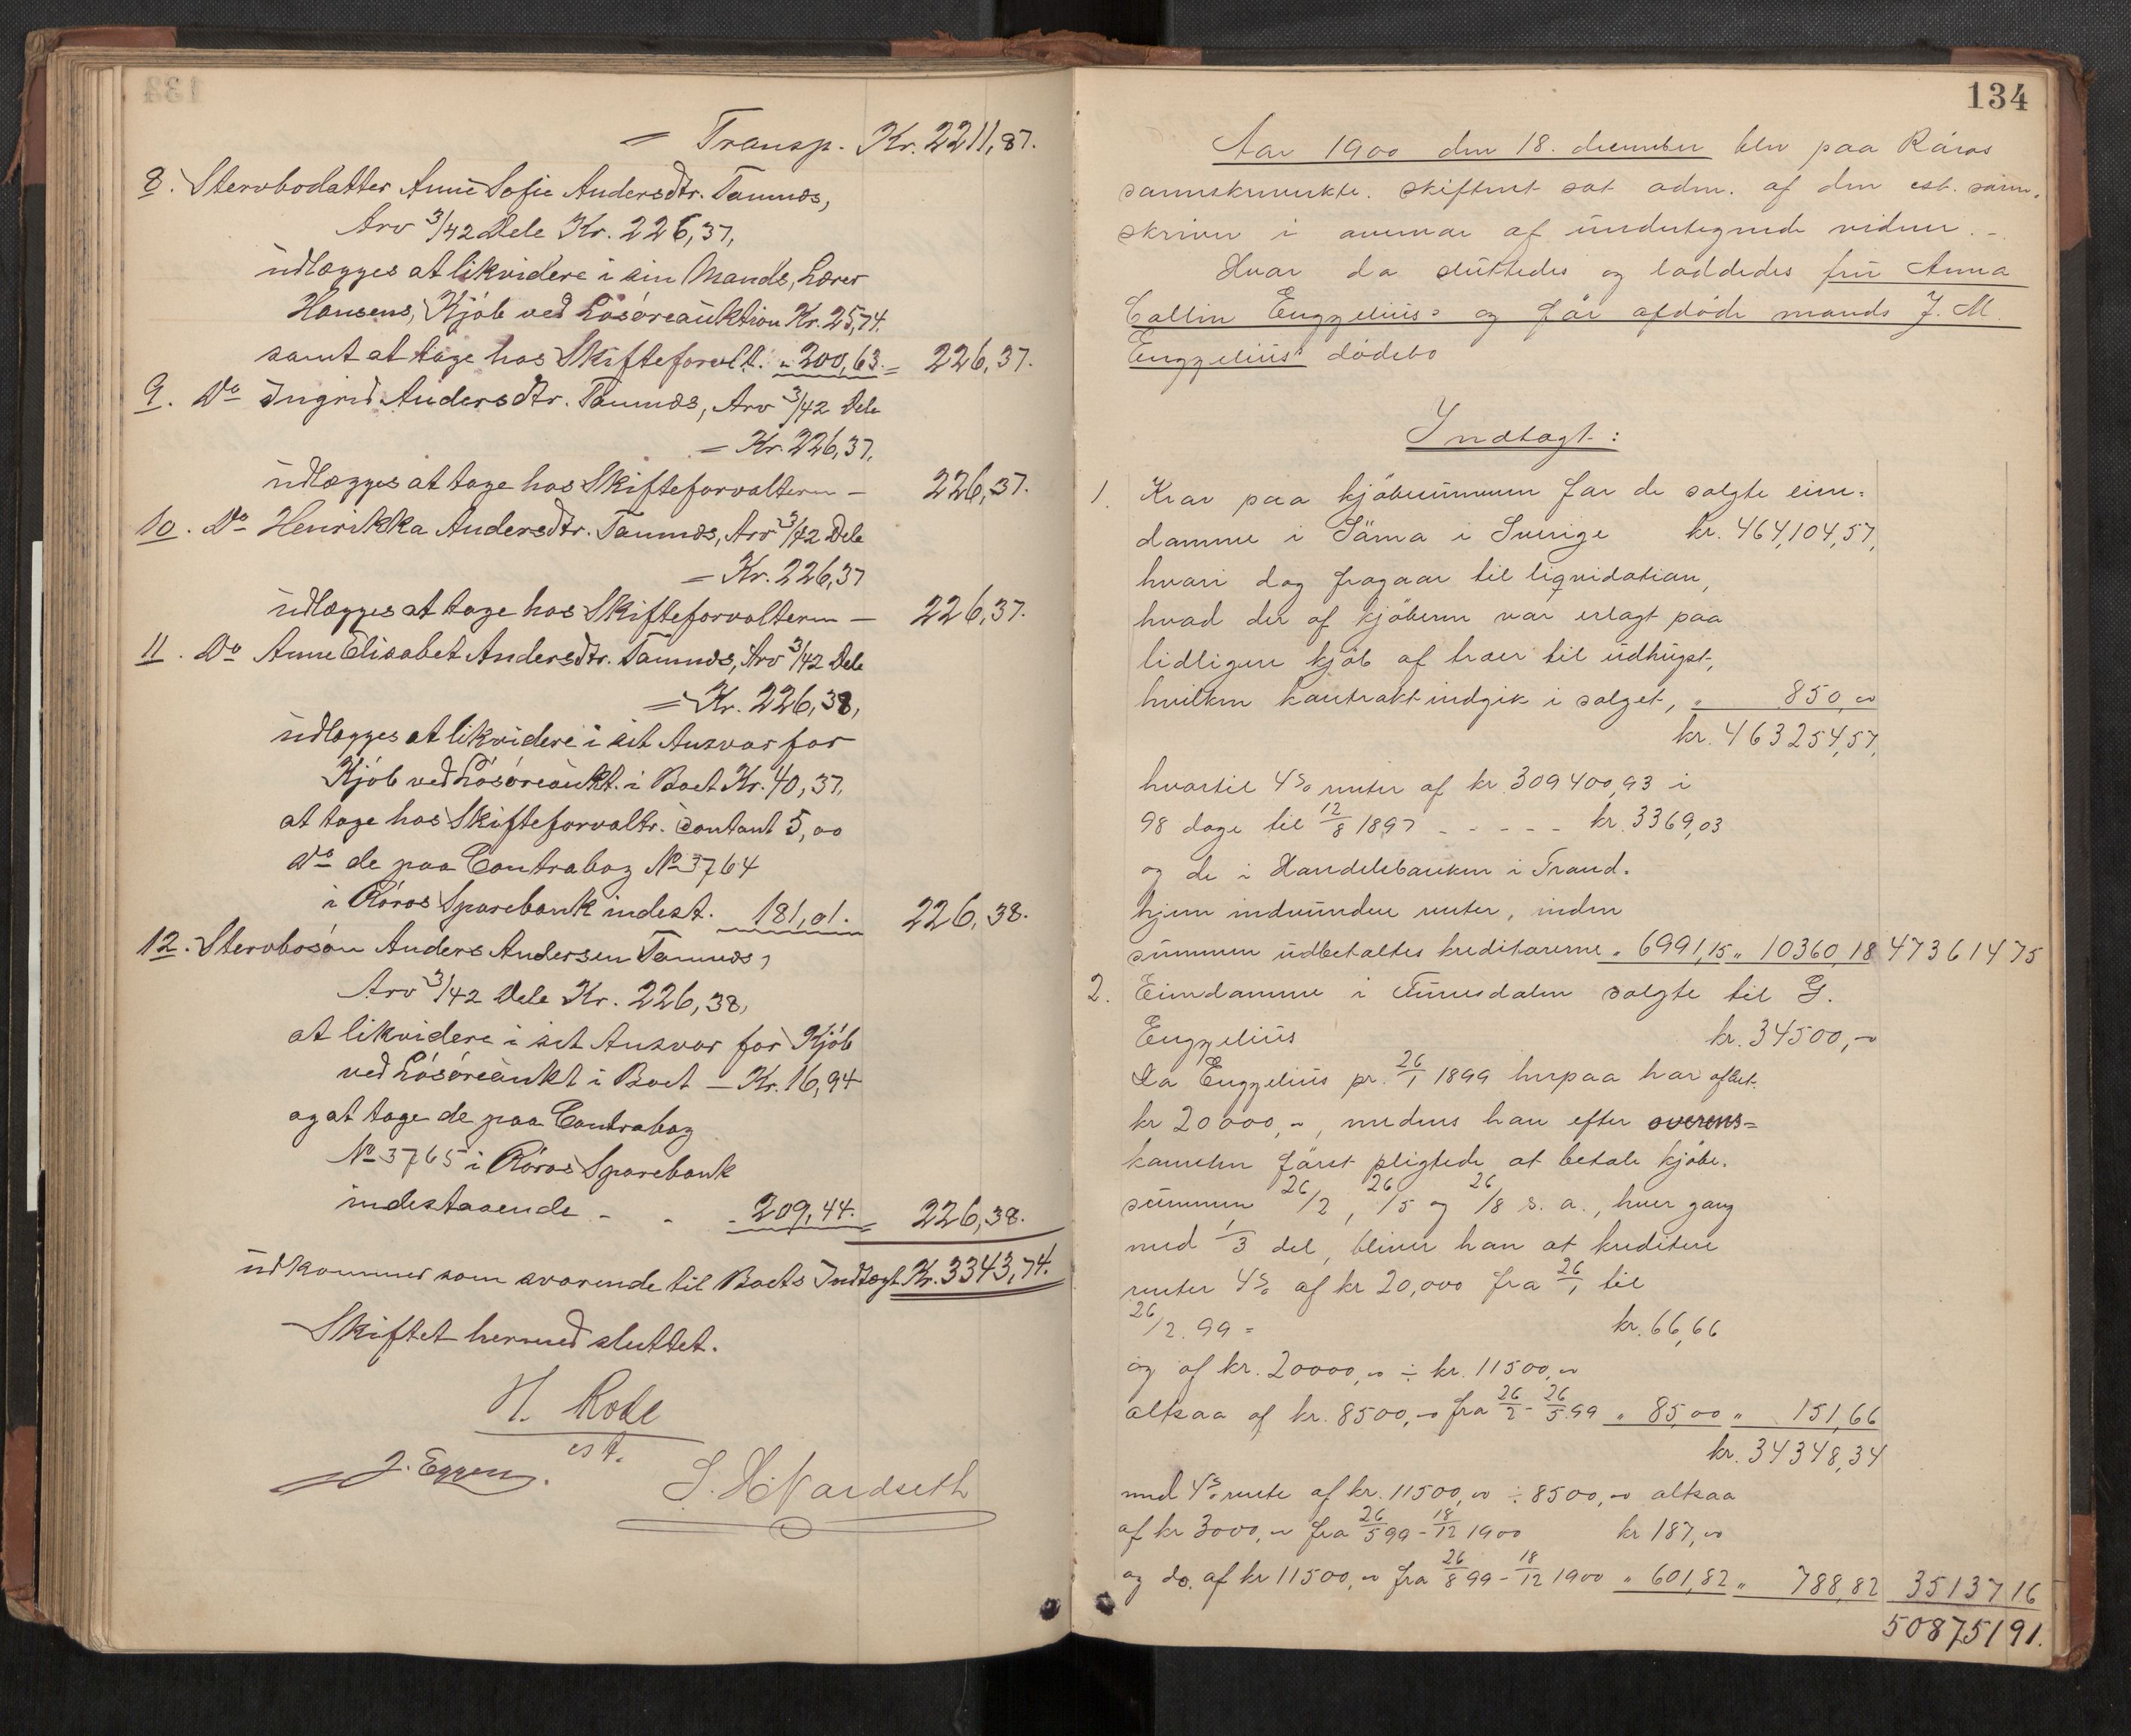 Transp. Kr. 2211,87.
8. Stervbodatter Anne Sofie Andersdtr. Tamnæs,
Arv 3/42 Dele Kr. 226,37,
udlægges at likvidere i sin Mands, Lærer
Hansens, Kjöb ved Lösöreauktion Kr. 25,74.
samt at tage hos Skifteforvlt. " 200,63. = 226,37.
9. Do Ingrid Andersdtr. Tamnæs, Arv 3/42 Dele
= Kr. 226,37,
udlægges at tage hos Skifteforvalteren – 226,37.
10. Do Henrikka Andersdtr. Tamnæs, Arv 3/42 Dele
= Kr. 226,37
udlægges at tage hos Skifteforvalteren – 226,37.
11. Do Anne Elisabet Andersdtr. Tamnæs, Arv 3/42 Dele
= Kr. 226,38,
udlægges at likvidere i sit Ansvar for
Kjöb ved Lösöreaukt. i Boet Kr. 40,37,
at tage hos Skifteforvaltr. contant 5,00
Do de paa Contrabog No 3764
i Röros Sparebank indest. 181,01. 226,38.
12. Stervbosön Anders Andersen Tamnæs,
Arv 3/42 Dele Kr. 226,38,
at likvidere i sit Ansvar for Kjöb
ved Lösöreaukt i Boet – Kr. 16,94
og at tage de paa Contrabog
No 3765 i Röros Sparebank
indestaaende - - - 209,44. = 226,38.
udkommer som svarende til Boets Indtægt Kr. 3343,74.
Skiftet hermed sluttet.
H. Rode
est.
J. Eggen.
134
Aar 1900 den 18. december blev paa Röros
sorenskriverkt. skifteret sat adm. af den est. soren-
skriver i overvær af undertegnede vidner. -
Hvor da sluttedes og loddedes fru Anna
Collin Engzelius's og för afdöde mands J. M.
Engzelius's dödsbo
Indtægt:
1. Krav paa kjöbesummen for de solgte eien-
domme i Särna i Sverige kr. 464,104,57,
hvori dog fragaar til liqvidation,
hvad der af kjöberen var erlagt paa
tidligere kjöb af træer til udhugst,
hvilken kontrakt indgik i salget, " 850,00
kr. 463254,57,
hvortil 4% renter af kr. 309400,93 i
98 dage til 12/8 1897 - - - - - kr. 3369,03
og de i Handelsbanken i Trond-
hjem indvundne renter, inden
summen udbetaltes kreditorerne " 6991,15 " 10360,18 473614 75
2. Eiendomme i Funesdalen solgte til G.
Engzelius kr. 34500,00
Da Engzelius pr. 26/1 1899 herpaa har afbet.
kr 20000,00, medens han efter overens-
komsten först pligtede at betale kjöbe-
summen 26/2, 26/5 og 26/8 s. a., hver gang
med 1/3 del, bliver han at kreditere
renter 4% af kr 20,000 fra 26/1 til
26/2. 99 = kr. 66,66
og af kr. 20000,00 ÷ kr. 11500,00
altsaa af kr. 8500,00 fra 26/2 - 26/5 99 " 85,00 " 151,66
kr. 34348,34
med 4% rente af kr. 11500,00 ÷ 8500,00 altsaa
af kr 3000,00 fra 26/5 99 - 18/12 1900 kr 187,00
og do. af kr 11500,00 fra 26/8 99 - 18/12 1900 " 601,82 " 788,82 35137 16
508751 91.